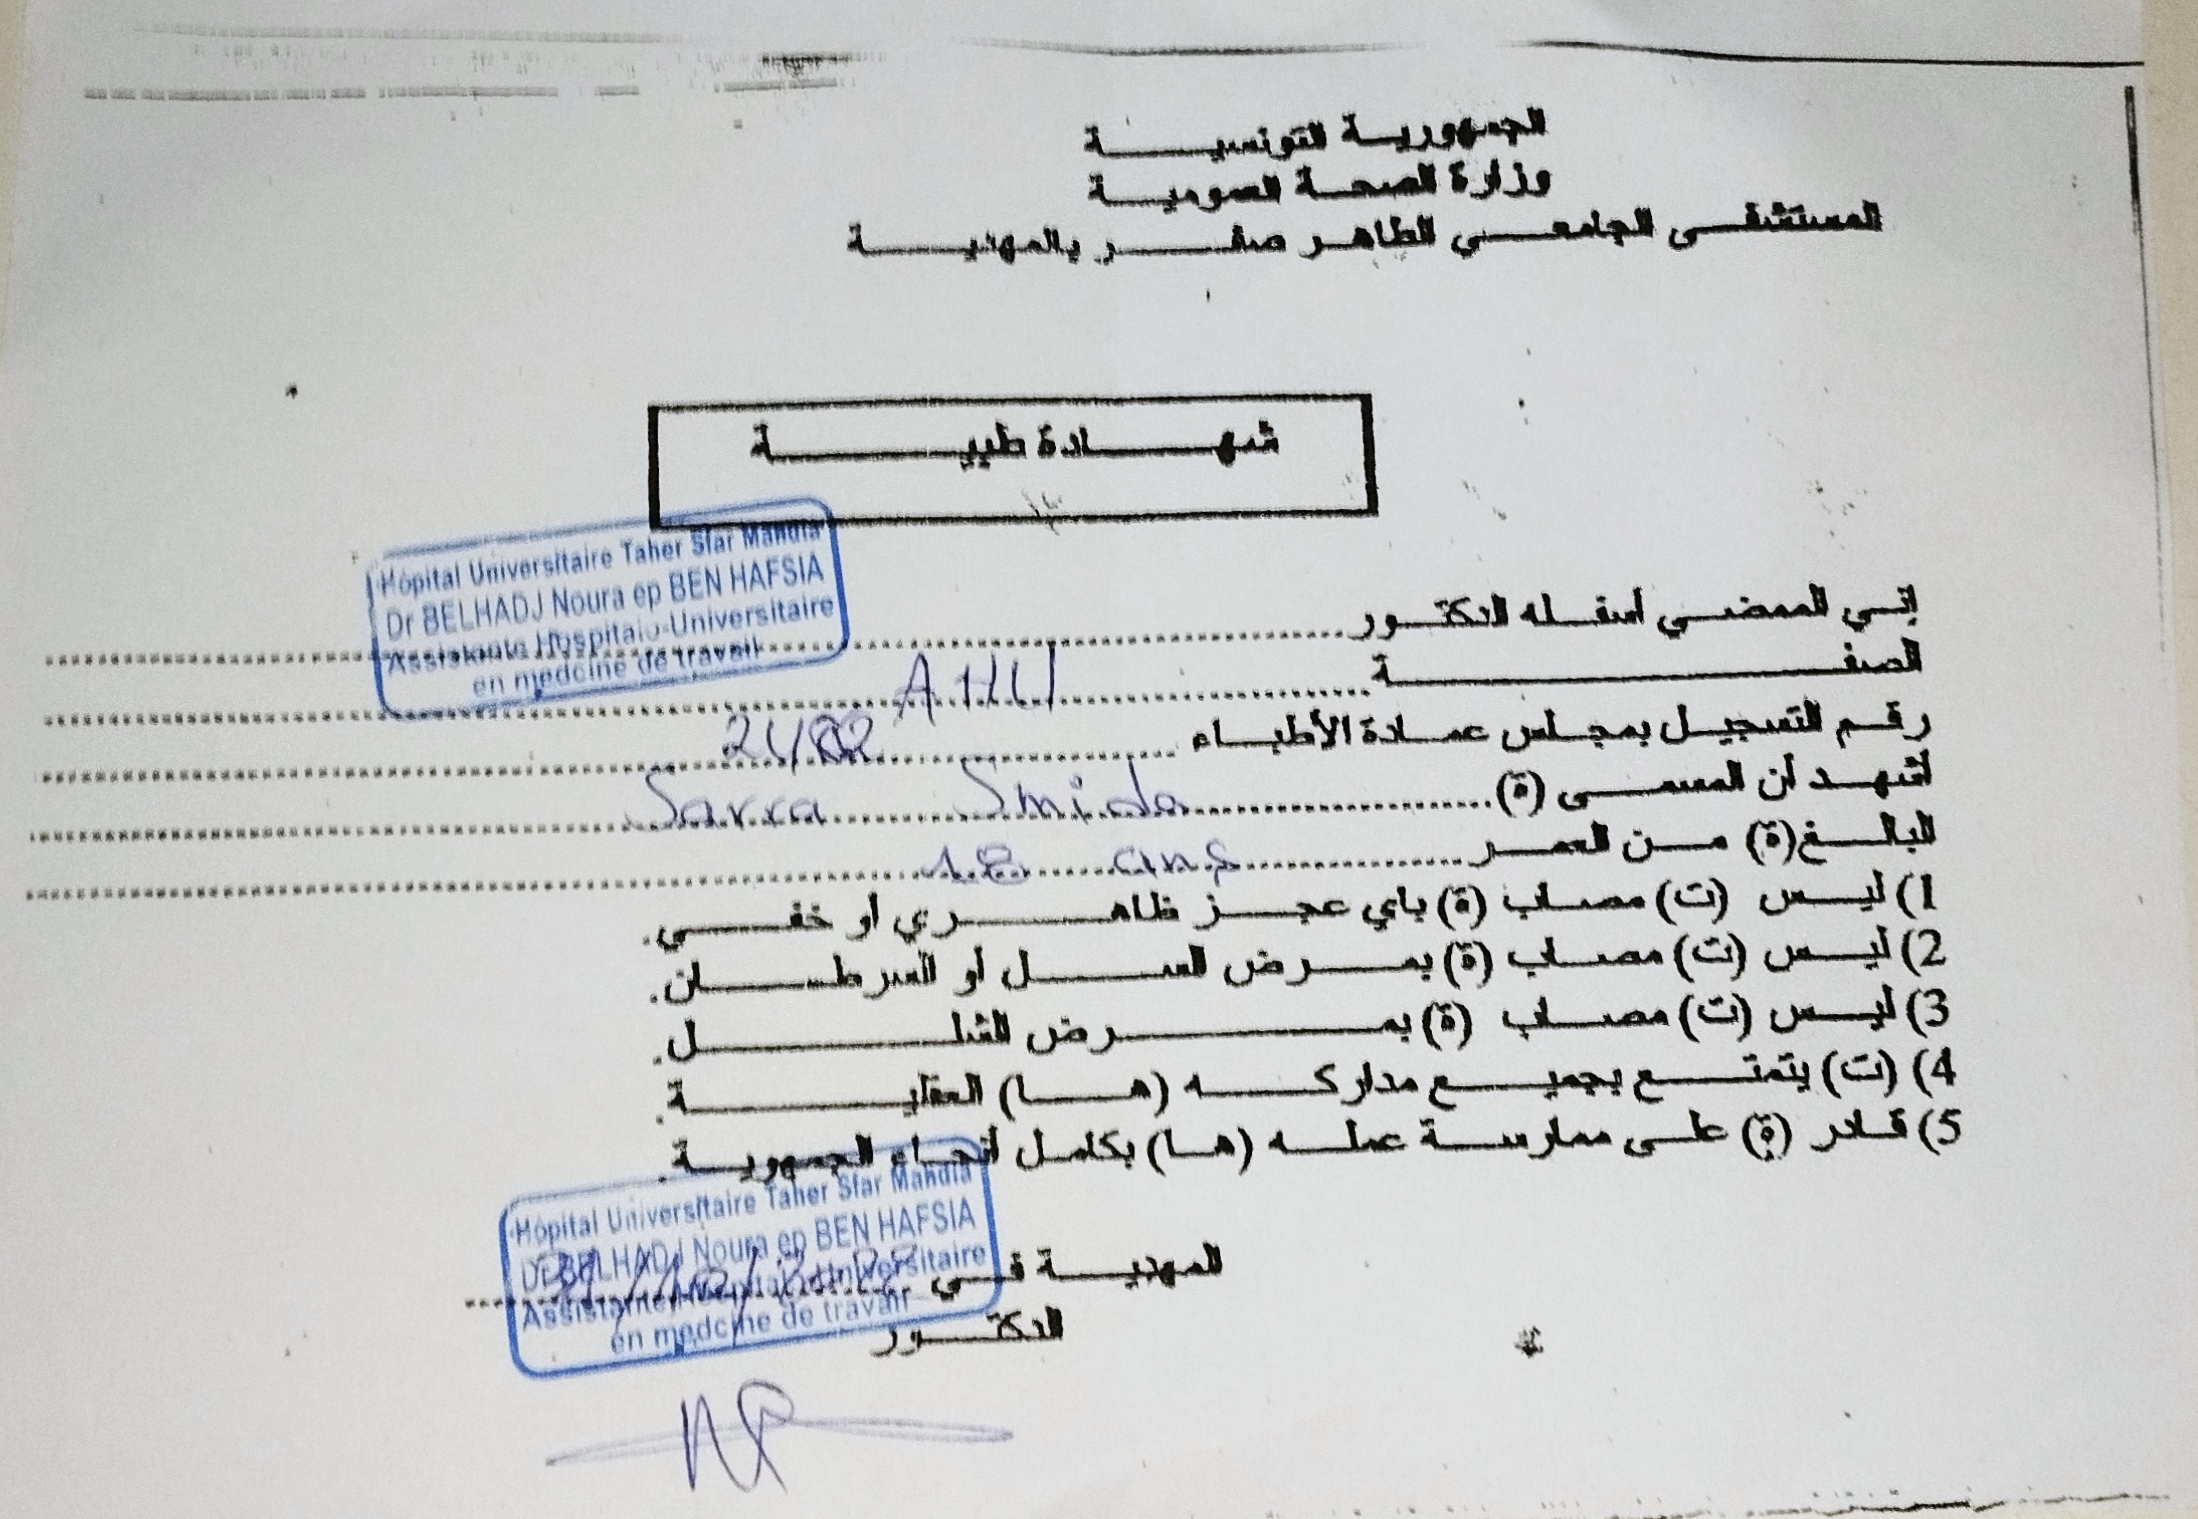 الجمهورية التونسية
وزارة الصحة العمومية
المستشفى الجامعي الطاهر صفر بالمهدية
شهادة طبية
Hôpital Universitaire Taher Sfar Mahdia
Dr BELHADJ Noura ep BEN HAFSIA
Assistante Hospitalo-Universitaire
en medcine de travail
إني الممضي أسفله الدكتور
الصفة AHU
رقم التسجيل بمجلس عمادة الأطباء
أشهد أن المسمى (ة) Sarra Smida
البالغ(ة) من العمر 18 ans
1) ليس (ت) مصاب (ة) باي عجز ظاهري أو خفي.
2) ليس (ت) مصاب (ة) بمرض السل أو السرطان.
3) ليس (ت) مصاب (ة) بمرض الشلل.
4) (ت) يتمتع بجميع مداركه (ها) العقلية.
5) قادر (ة) على ممارسة عمله (ها) بكامل أنحاء الجمهورية.
Hôpital Universitaire Taher Sfar Mahdia
Dr BELHADJ Noura ep BEN HAFSIA
Assistante Hospitalo-Universitaire
en medcine de travail
المهدية في
الدكتور